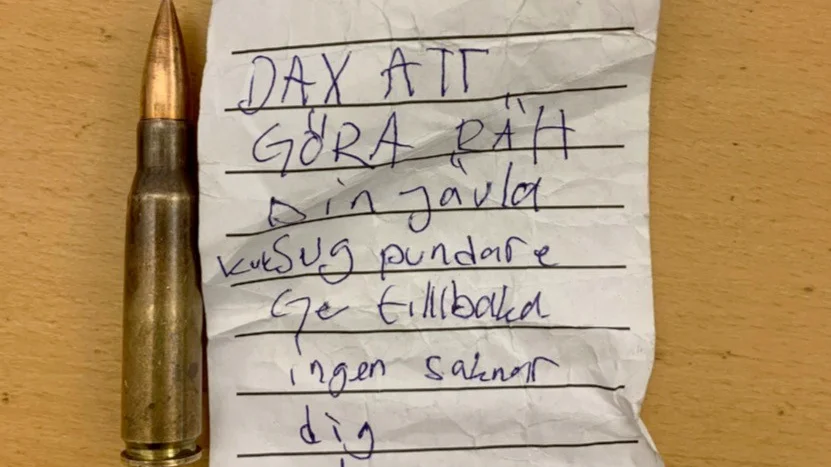 DAX ATT
GÖRA RÄH
Din jävla
kukSug pundare
Ge tillbaka
ingen saknar
dig